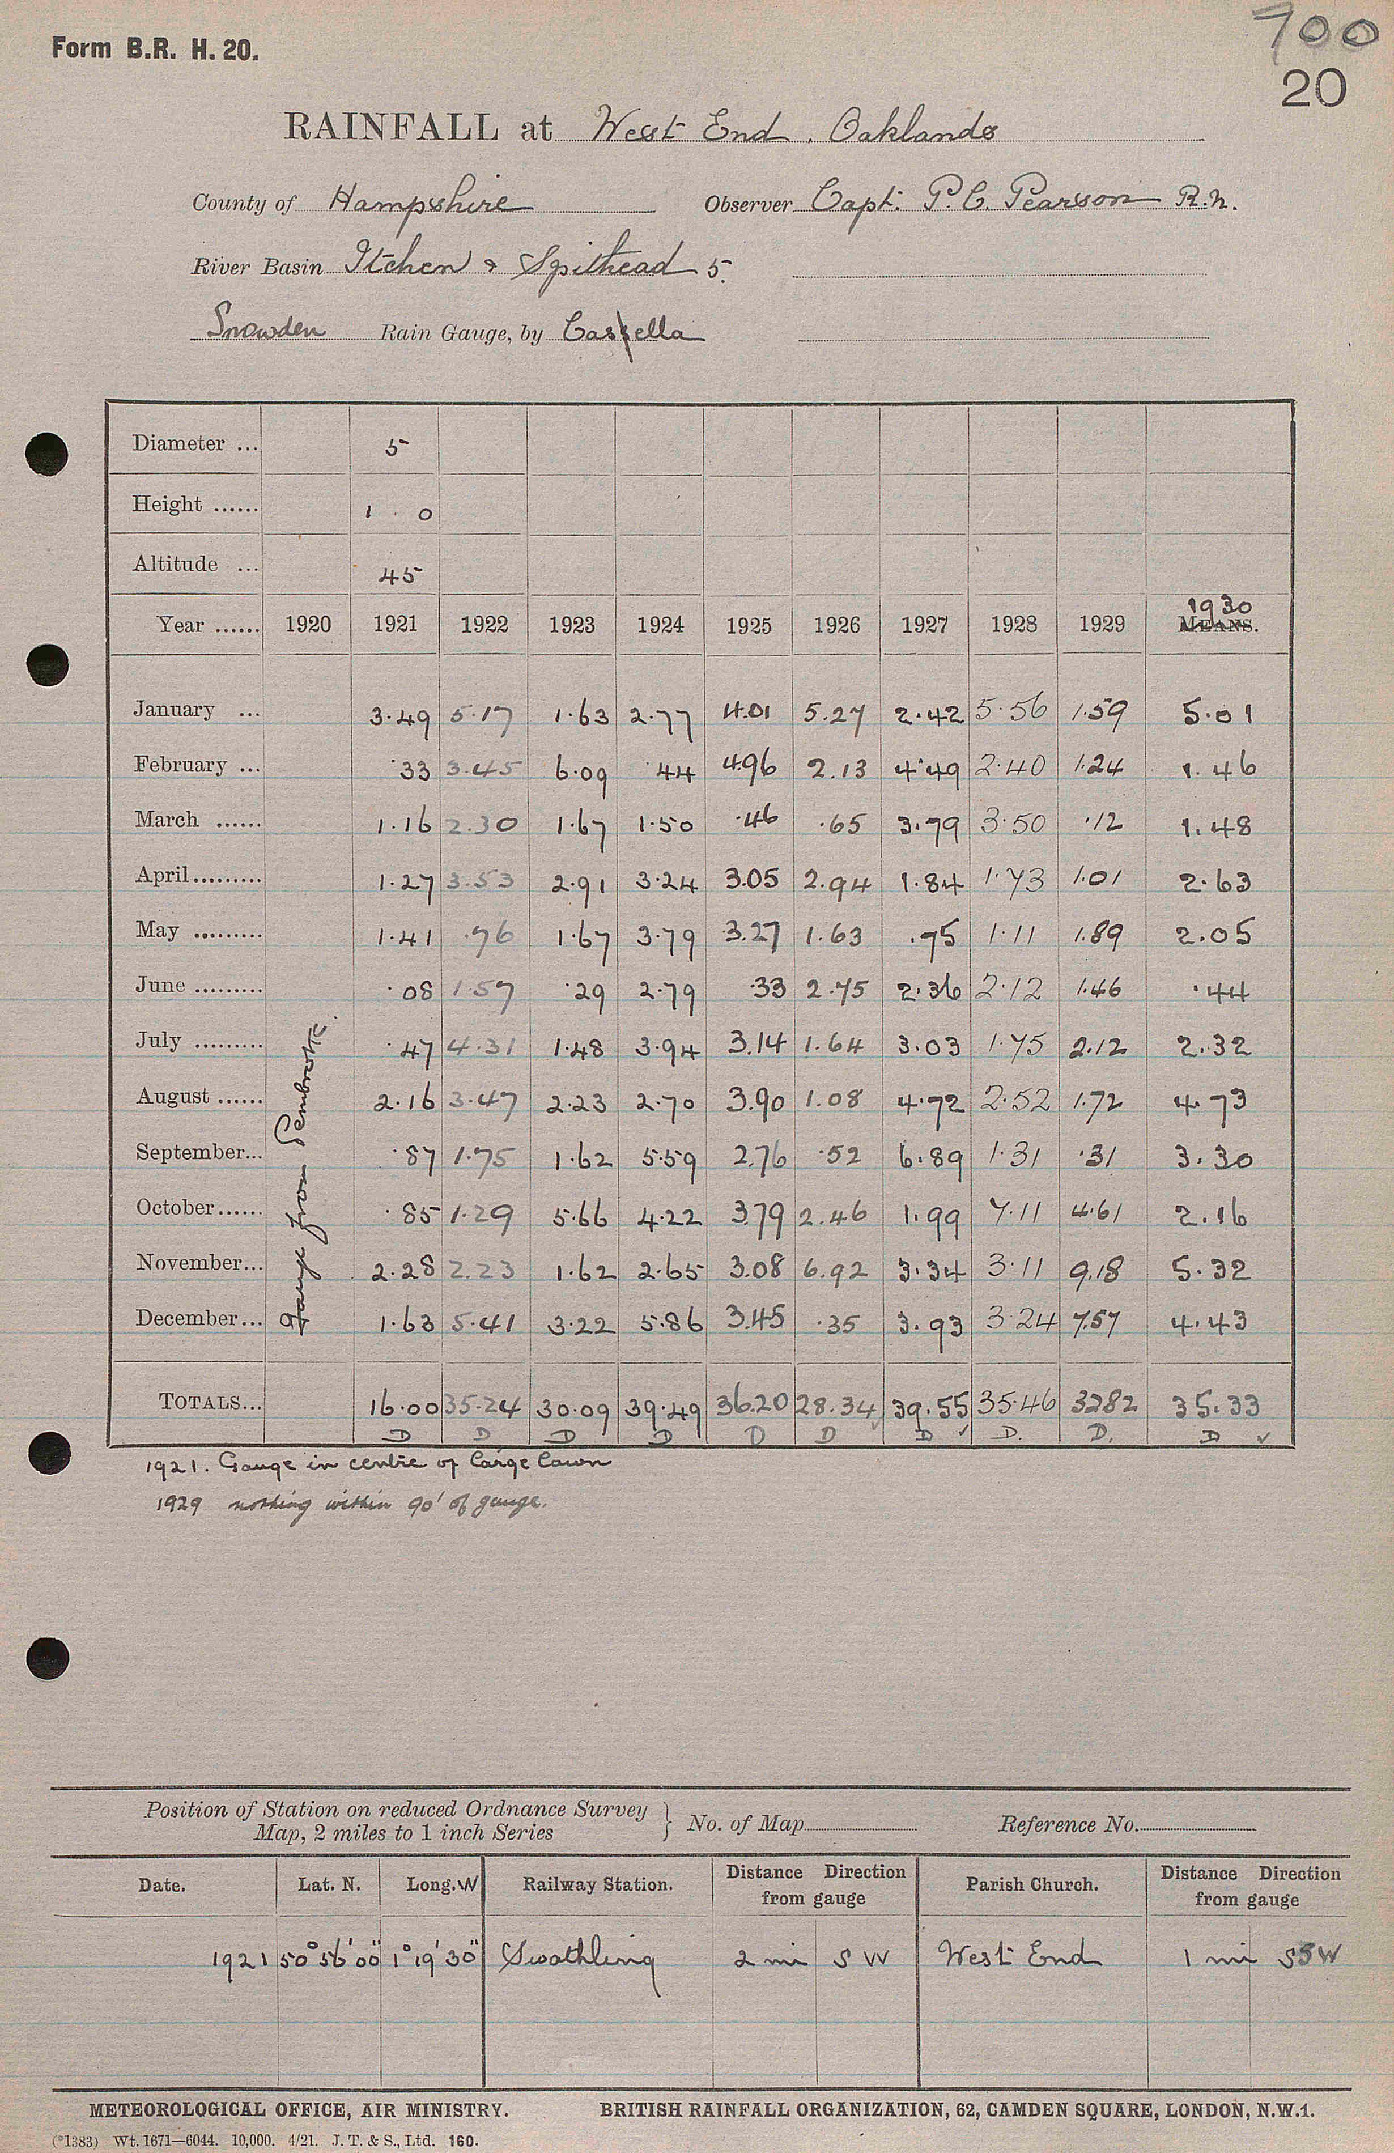 700
Form B.R. H. 20.
20
RAINFALL at West End, Oaklands
County of Hampshire Observer Capt. P. C. Pearson R.N.
River Basin Itchen & Spithead 5.
Snowden Rain Gauge, by Cassella
Diameter ... 5
Height ...... 1 . 0
Altitude ... 45
1930
Year ...... 1920 1921 1922 1923 1924 1925 1926 1927 1928 1929 MEANS.
January ... 3.49 5.17 1.63 2.77 4.01 5.27 2.42 5.56 1.59 5.01
February ... .33 3.45 6.09 .44 4.96 2.13 4.49 2.40 1.24 1.46
March ...... 1.16 2.30 1.67 1.50 .46 .65 3.79 3.50 .12 1.48
April......... 1.27 3.53 2.91 3.24 3.05 2.94 1.84 1.73 1.01 2.63
May ......... 1.41 .76 1.67 3.79 3.27 1.63 .75 1.11 1.89 2.05
June ......... .08 1.57 .29 2.79 .33 2.75 2.36 2.12 1.46 .44
July ......... .47 4.31 1.48 3.94 3.14 1.64 3.03 1.75 2.12 2.32
August ...... 2.16 3.47 2.23 2.70 3.90 1.08 4.72 2.52 1.72 4.73
September... .87 1.75 1.62 5.59 2.76 .52 6.89 1.31 .31 3.30
October...... .85 1.29 5.66 4.22 3.79 2.46 1.99 7.11 4.61 2.16
November... 2.28 2.23 1.62 2.65 3.08 6.92 3.34 3.11 9.18 5.32
December... 1.63 5.41 3.22 5.86 3.45 .35 3.93 3.24 7.57 4.43
Gauge from Pembroke.
TOTALS... 16.00 35.24 30.09 39.49 36.20 28.34 39.55 35.46 3282 35.33
D D D D D D D ✓ D. D. D ✓
1921. Gauge in centre of large lawn
1929 nothing within 90' of gauge.
Position of Station on reduced Ordnance Survey
Map, 2 miles to 1 inch Series } No. of Map Reference No.
Date. Lat. N. Long. W Railway Station. Distance Direction from gauge Parish Church. Distance Direction from gauge
1921 50° 56' 00" 1° 19' 30" Swathling 2 mi S W West End 1 mi SSW
METEOROLOGICAL OFFICE, AIR MINISTRY. BRITISH RAINFALL ORGANIZATION, 62, CAMDEN SQUARE, LONDON, N.W.1.
(*1383) Wt. 1671—6044. 10,000. 4/21. J. T. & S., Ltd. 160.